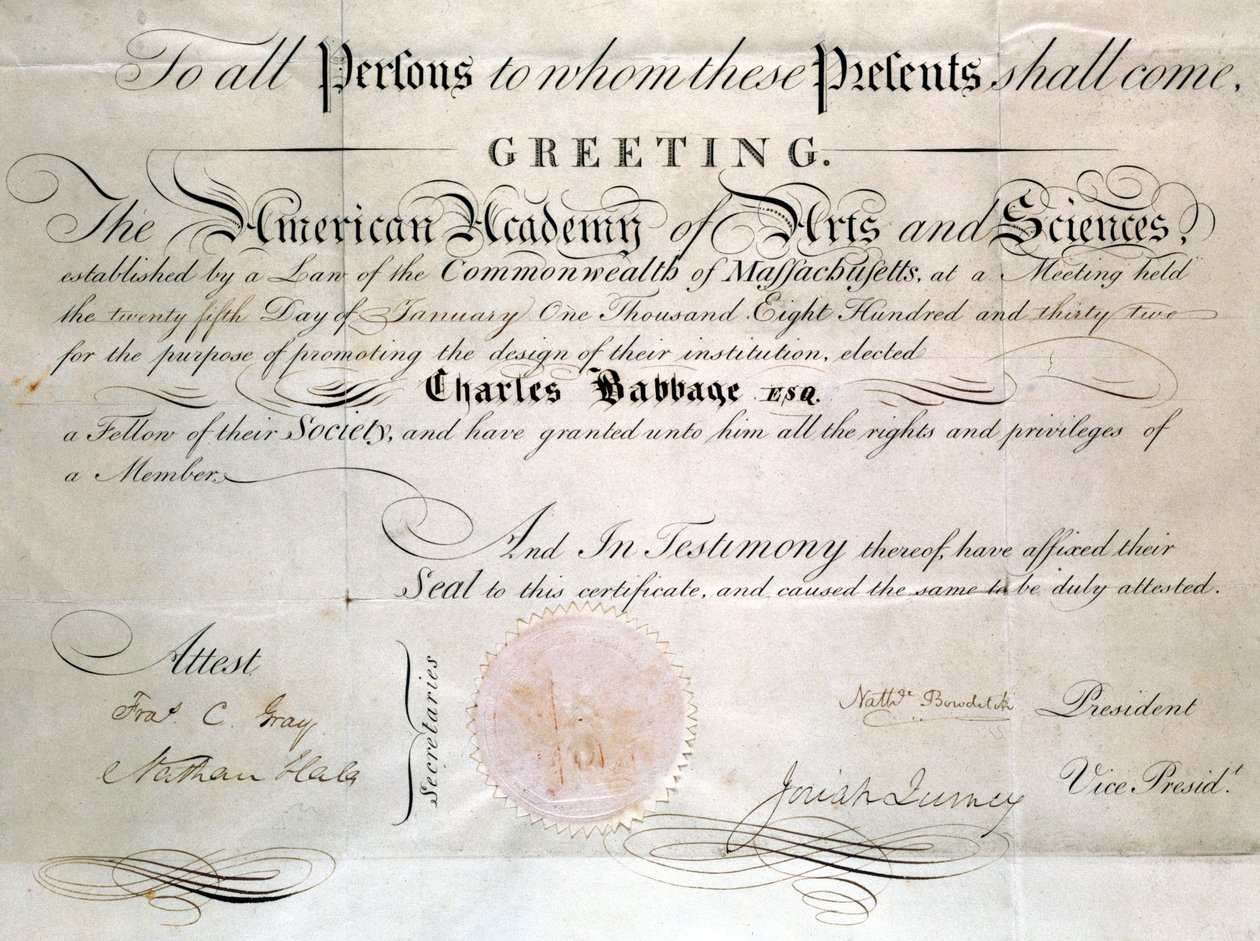 To all Perſons to whom these Preſents shall come,
GREETING.
The American Academy of Arts and Sciences,
established by a Law of the Commonwealth of Maſſachuſetts, at a Meeting held
the twenty fifth Day of January One Thousand Eight Hundred and thirty two
for the purpose of promoting the design of their institution, elected
Charles Babbage ESQ.
a Fellow of their Society, and have granted unto him all the rights and privileges of
a Member.
And In Testimony thereof, have affixed their
Seal to this certificate, and caused the same to be duly attested.
Attest
Fras. C. Gray
Nathan Hale
Secretaries
Nathl. Bowditch President
Josiah Quincy Vice Presidt.